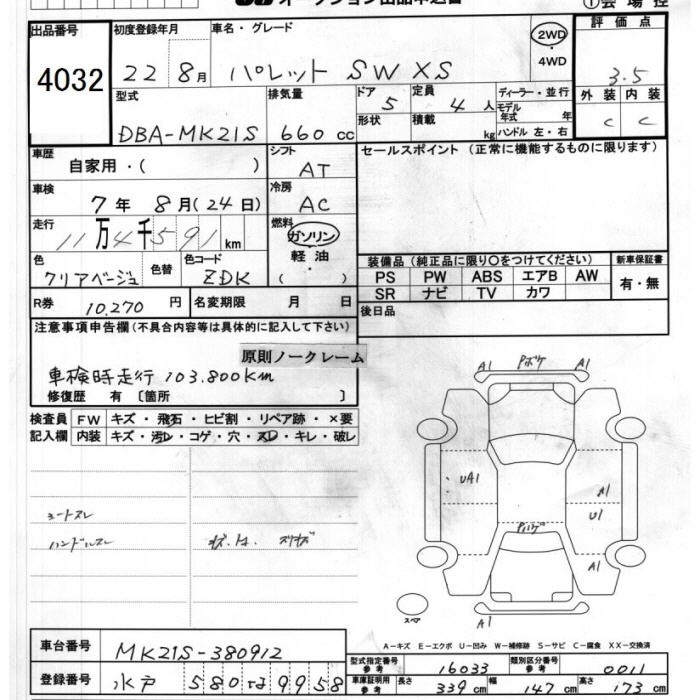 オークション出品申込書 ①会場控
出品番号 初度登録年月 車名・グレード 2WD・4WD 評価点
4032 22 8月 パレット SW XS 3.5
型式 排気量 ドア 定員 ディーラー・並行 外装 内装
DBA-MK21S 660 cc 5 4人 モデル年式 年 C C
形状 積載 kg ハンドル 左・右
車歴 シフト セールスポイント (正常に機能するものに限ります)
自家用・( ) AT
車検 冷房
7年 8月(24日) AC
走行 燃料
11万4千591km ガソリン 軽油 ( )
色 色替 色コード 装備品 (純正品に限り○をつけてください) 新車保証書
クリアベージュ ZDK PS PW ABS エアB AW 有・無
SR ナビ TV カワ
R券 10,270 円 名変期限 月 日 後日品
注意事項申告欄 (不具合内容等は具体的に記入して下さい)
原則ノークレーム
車検時走行 103.800km
修復歴 有 〔箇所 〕
検査員 FW キズ・飛石・ヒビ割・リペア跡・×要
記入欄 内装 キズ・汚レ・コゲ・穴・スレ・キレ・破レ
シートスレ
ハンドルスレ
A1 Pボケ A1
UA1 A1
U1
Pハゲ
A1
A1
スペア
A-キズ E-エクボ U-凹み W-補修跡 S-サビ C-腐食 XX-交換済
車台番号 MK21S-380912 型式指定番号 参考 16033 類別区分番号 参考 0011
登録番号 水戸 580 9958 車庫証明用 参考 長さ 339cm 幅 147cm 高さ 173cm